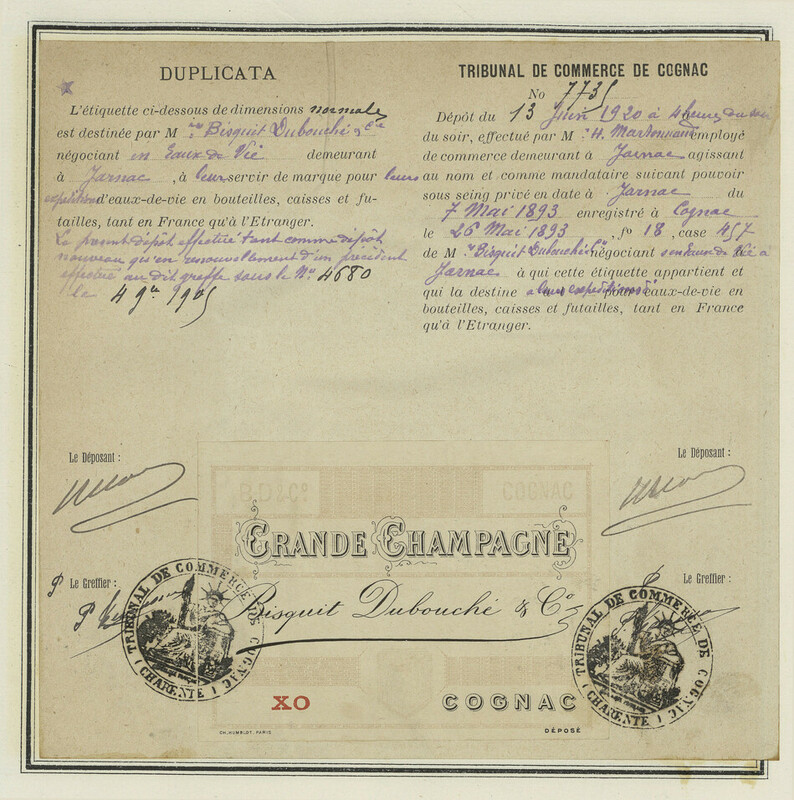 DUPLICATA
L'étiquette ci-dessous de dimensions normales
est destinée par M rs Bisquit Dubouché & Cie
négociant en Eaux de Vie demeurant
à Jarnac, à leur servir de marque pour leurs
expéditions d'eaux-de-vie en bouteilles, caisses et fu-
tailles, tant en France qu'à l'Etranger.
Le présent dépôt effectué tant comme dépôt
nouveau qu'en renouvellement d'un précédent
effectué au dit greffe sous le No 4680
le 4 9bre 1905
TRIBUNAL DE COMMERCE DE COGNAC
No 7735
Dépôt du 13 Juin 1920 à 4 heures du soir
du soir, effectué par M H. employé
de commerce demeurant à Jarnac agissant
au nom et comme mandataire suivant pouvoir
sous seing privé en date à Jarnac du
7 Mai 1893 enregistré à Cognac
le 26 Mai 1893, fo 18, case 457
de M rs Bisquit Dubouché & Cie négociant en Eaux de Vie à
Jarnac à qui cette étiquette appartient et
qui la destine à leurs expéditions d'eaux-de-vie en
bouteilles, caisses et futailles, tant en France
qu'à l'Etranger.
Le Déposant :
Le Déposant :
Le Greffier :
Le Greffier :
B.D & Co
COGNAC
GRANDE CHAMPAGNE
Bisquit Dubouché & Co
XO
COGNAC
CH. HUMBLOT, PARIS
DÉPOSÉ
TRIBUNAL DE COMMERCE DE COGNAC
(CHARENTE)
TRIBUNAL DE COMMERCE DE COGNAC
(CHARENTE)